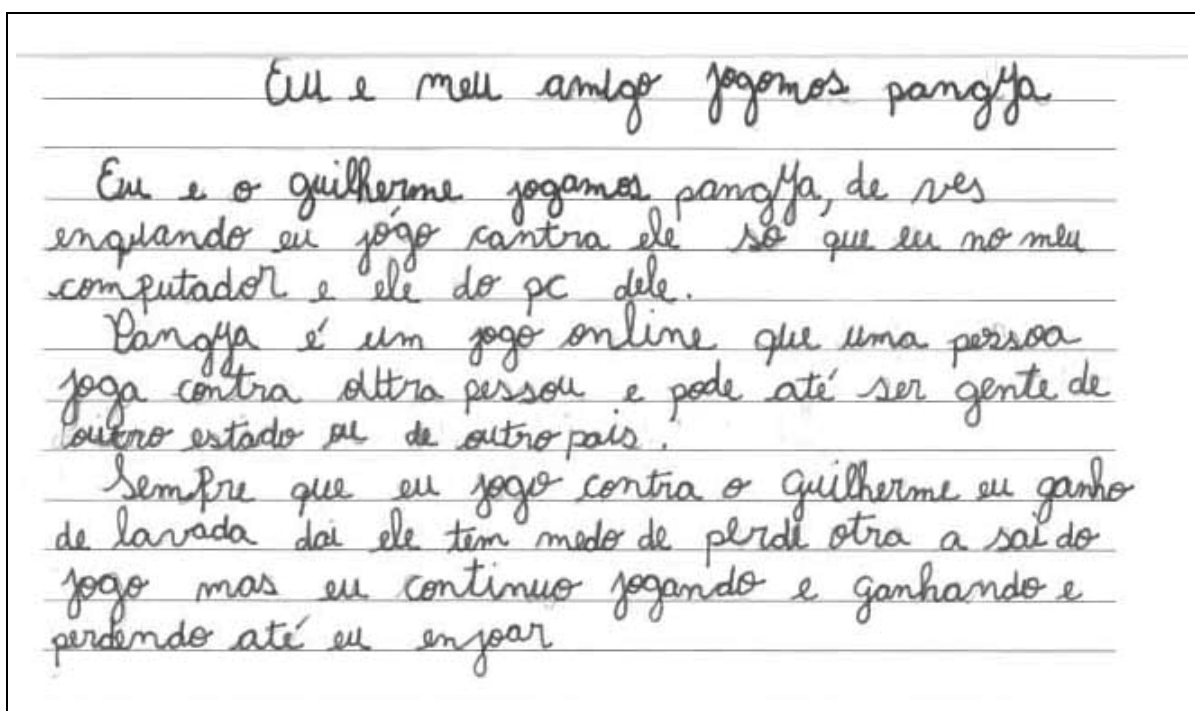 Eu e meu amigo jogamos pangya
Eu e o guilherme jogamos pangya, de ves
enquando eu jógo cantra ele só que eu no meu
computador e ele do pc dele.
Pangya é um jogo online que uma persoa
joga contra outra pessou e pode até ser gente de
outro estado ou de outro pais.
Sempre que eu jogo contra o Guilherme eu ganho
de lavada dai ele tem medo de perde otra a sai do
jogo mas eu continuo jogando e ganhando e
perdendo até eu enjoar